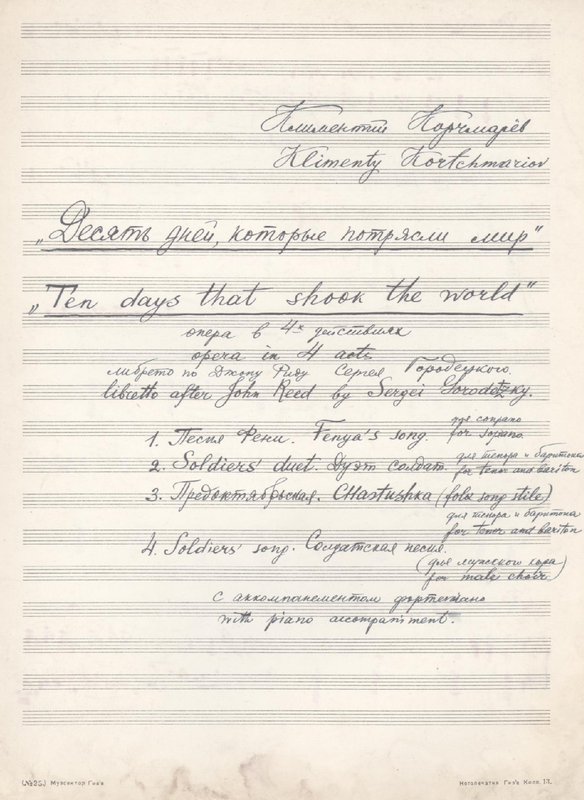 Климентий Корчмарёв
Klimenty Kortchmariov
„Десять дней, которые потрясли мир"
„Ten days that shook the world"
опера в 4х действиях
opera in 4 acts
либрето по Джону Риду Сергея Городецкого
libretto after John Reed by Sergei Gorodetzky.
для сопрано
1. Песня Фени. Fenya's song. for soprano
для тенора и баритона
2. Soldiers' duet. Дуэт солдат. for tenor and bariton
3. Предоктябрьская. CHastushka (folk song stile)
для тенора и баритона
for tenor and bariton
4. Soldiers' song. Солдатская песня.
(для мужского хора)
for male choir)
с аккомпанементом фортепиано
with piano accompaniment.
(№25) Музсектор Гиз'а
Нотопечатня Гиз'а Колп. 13.